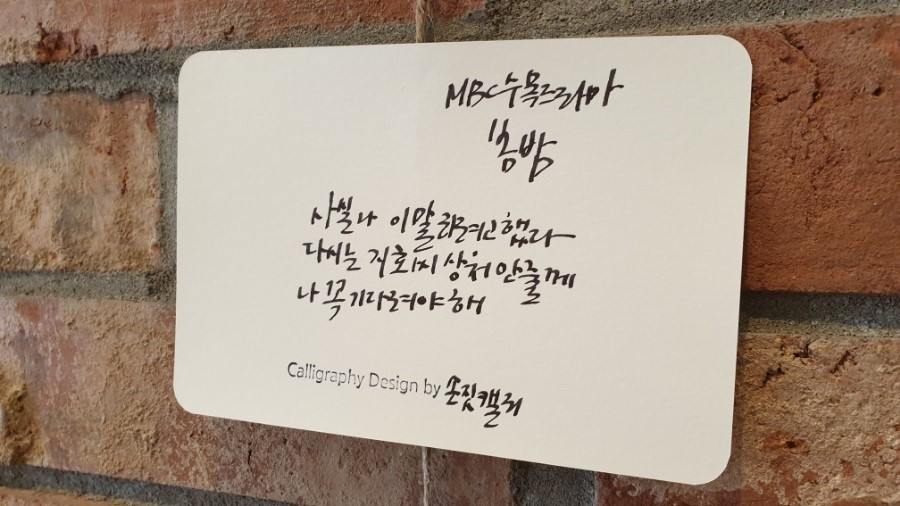 MBC수목드라마
봄밤
사실 나 이말 하려고 했다
다시는 지호씨 상처 안줄께
나 꼭 기다려야해
Calligraphy Design by 손짓캘리